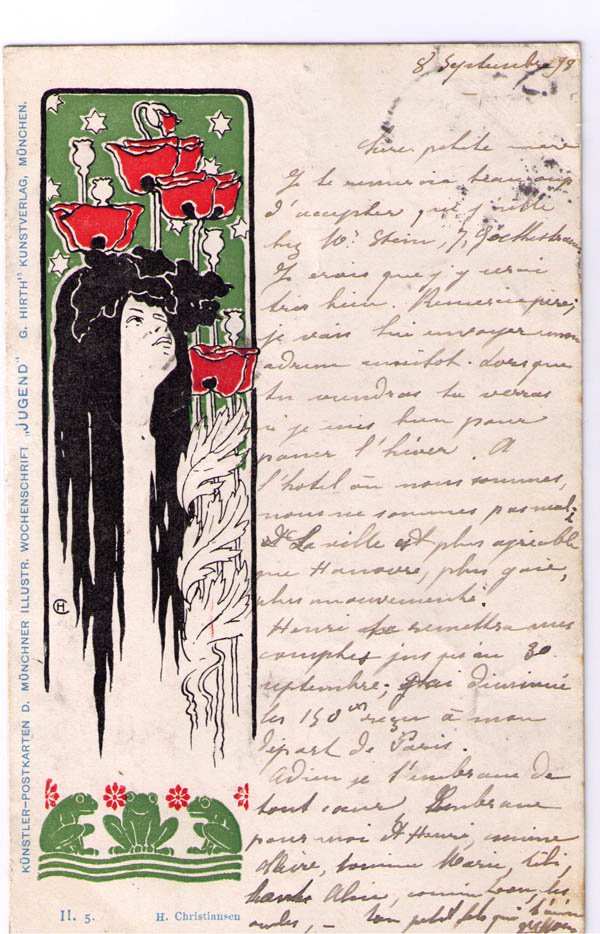 8 Septembre 98
Chère petite mère
Je te remercie beaucoup
d'accepter que j'
chez Mr Stein, 7,
Je crois que j'y serai
très bien. Remercie père,
je vais lui envoyer mon
adresse aussitôt. Lorsque
tu viendras tu verras
si je suis bien pour
passer l'hiver. A
l'hôtel où nous sommes,
nous ne sommes pas mal
La ville est plus agréable
que Hanovre, plus gaie,
plus mouvementée.
Henri remettra mes
comptes jusqu'au 30
septembre; diminué
les 150 reçu à mon
départ de Paris.
Adieu je t'embrasse de
tout coeur Embrasse
pour moi Henri, comme
Marie,
Alice,
ton petit fils qui t'aime
KÜNSTLER-POSTKARTEN D. MÜNCHNER ILLUSTR. WOCHENSCHRIFT „JUGEND" G. HIRTH'S KUNSTVERLAG, MÜNCHEN.
CH
II. 5. H. Christiansen